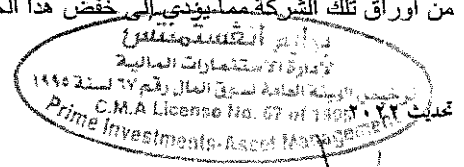 من أوراق تلك الشركة مما يؤدي إلى خفض هذا
برايم انفستمنتس
لإدارة الاستثمارات المالية
ترخيص الهيئة العامة لسوق المال رقم ٦٧ لسنة ١٩٩٥
C.M.A License No. 67 of 1995
تحديث ٢٠٢٢
Prime Investments-Asset Management